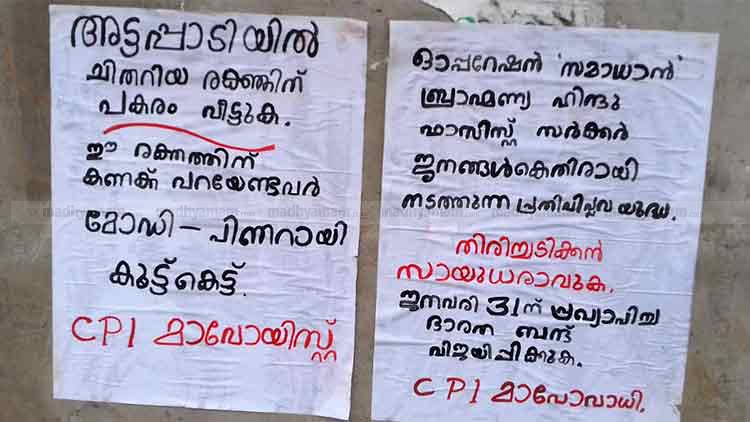 അട്ടപ്പാടിയിൽ
ചിതറിയ രക്തത്തിന്
പകരം വീട്ടുക.
ഈ രക്തത്തിന്
കണക്ക് പറയേണ്ടവർ
മോഡി – പിണറായി
കൂട്ട്കെട്ട്.
CPI മാവോയിസ്റ്റ്
ഓപ്പറേഷൻ 'സമാധാൻ'
ബ്രാഹ്മണ്യ ഹിന്ദു
ഫാസിസ്റ്റ് സർക്കർ
ജനങ്ങൾകെതിരായി
നടത്തുന്ന പ്രതിവിപ്ലവ യുദ്ധം.
തിരിച്ചടിക്കൻ
സായുധരാവുക.
ജനുവരി 31ന് പ്രഖ്യാപിച്ച
ഭാരത ബന്ദ്
വിജയിപ്പിക്കുക.
CPI മാവോവാധി.
madhyamam